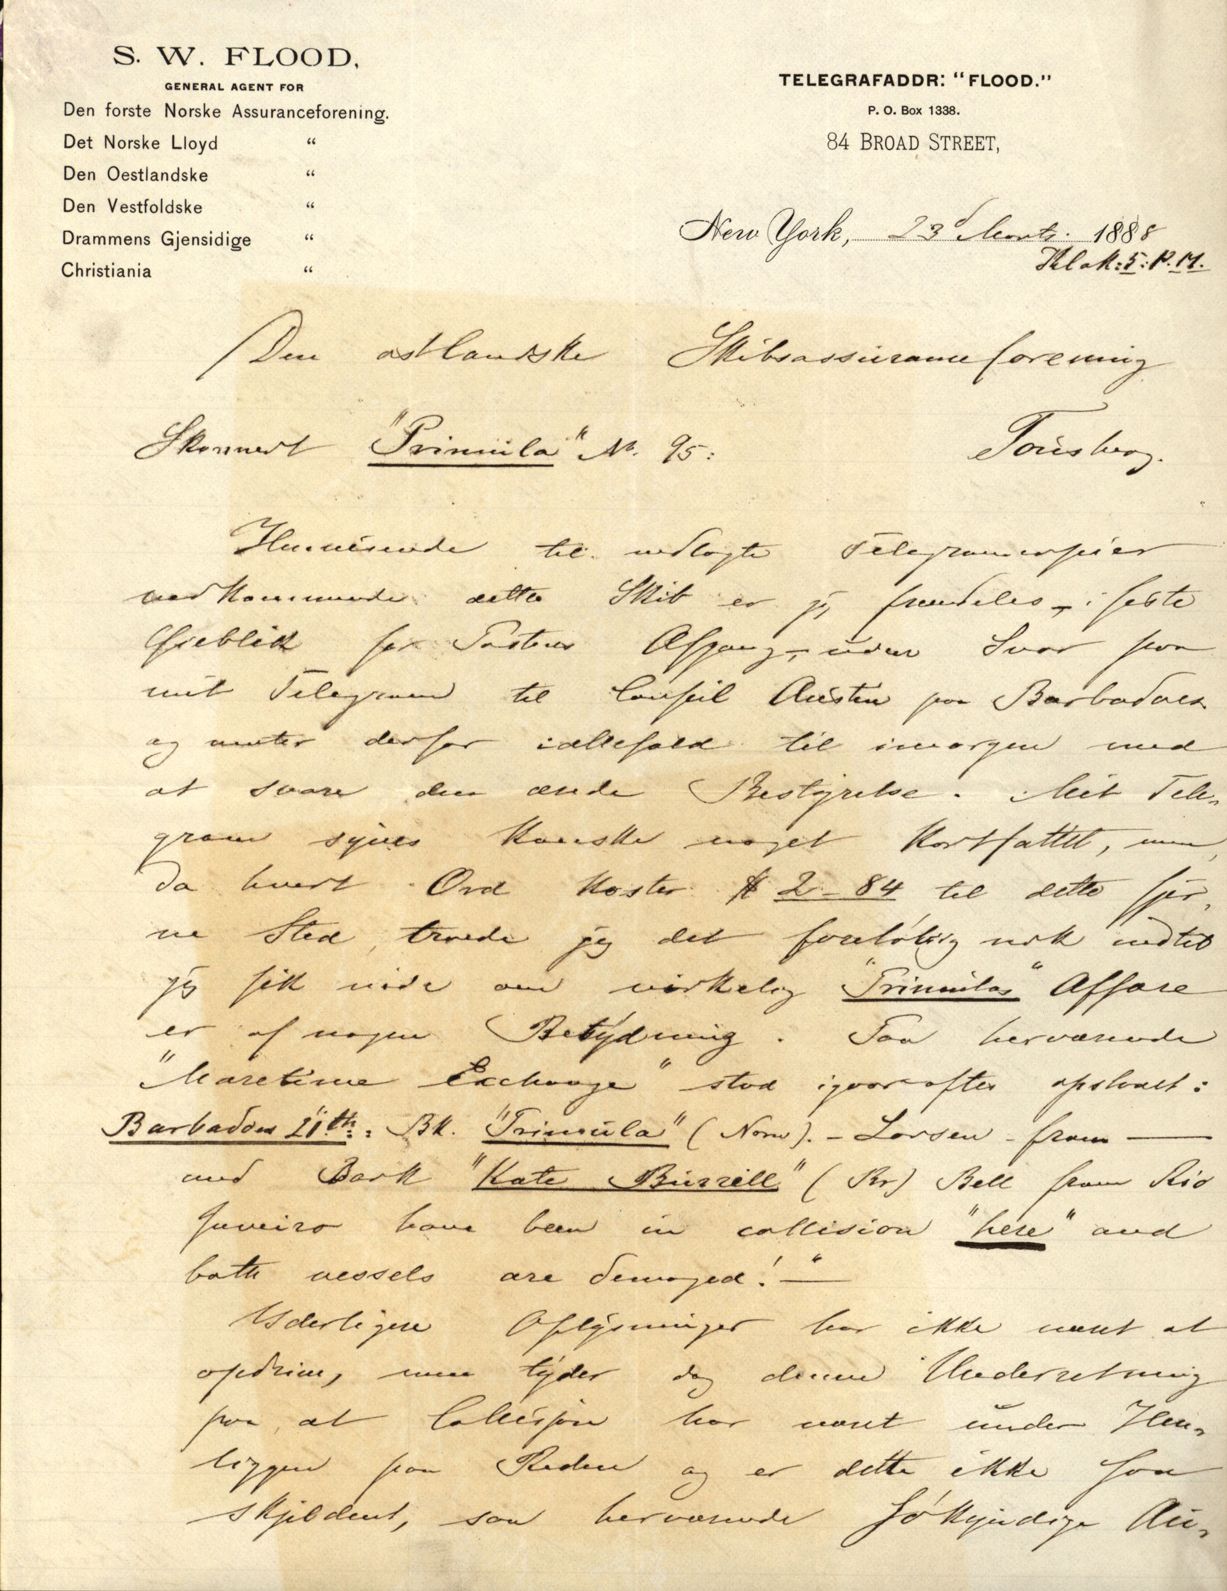 S. W. FLOOD,
GENERAL AGENT FOR
Den forste Norske Assuranceforening.
Det Norske Lloyd "
Den Oestlandske "
Den Vestfoldske "
Drammens Gjensidige "
Christiania "
TELEGRAFADDR: "FLOOD."
P. O. Box 1338.
84 BROAD STREET,
New York, 23d Marts. 1888
Klok: 5: P. M.
Den østlandske Skibsassuranceforening
Skonnert "Primula" No. 95: Tønsberg.
Henvisende til vedlagte Telegramcopier
vedkommende dette Skib er jeg fremdeles, i sidste
Øieblik før Postens Afgang, uden Svar paa
mit Telegram til Consul Austen paa Barbadoes
og venter derfor ialfald til imorgen med
at svare den ærede Bestyrelse. Mit Tele-
gram synes kanske noget kortfattet, men,
da hvert Ord koster $ 2-84 til dette fjer-
ne Sted, troede jeg det foreløbig nok indtil
jeg fik vide om virkelig "Primulas" Affære
er af nogen Betydning. Paa herværende
"Maretime Exchange" stod igaaraftes opslaaet:
Barbados 21th: Bk. "Primula" (Norw). - Larsen - from —
and Bark "Kate Burrill" (Br) Bell from Rio
Janeiro have been in collision "here" and
both vessels are damaged!" —
Yderligere Oplysninger har ikke været at
opdrive, men tyder dog denne Underretning
paa at Collisjon har været under Hen-
liggen paa Reden og er dette ikke saa
skjeldent, saa herværende Søkyndige Au-